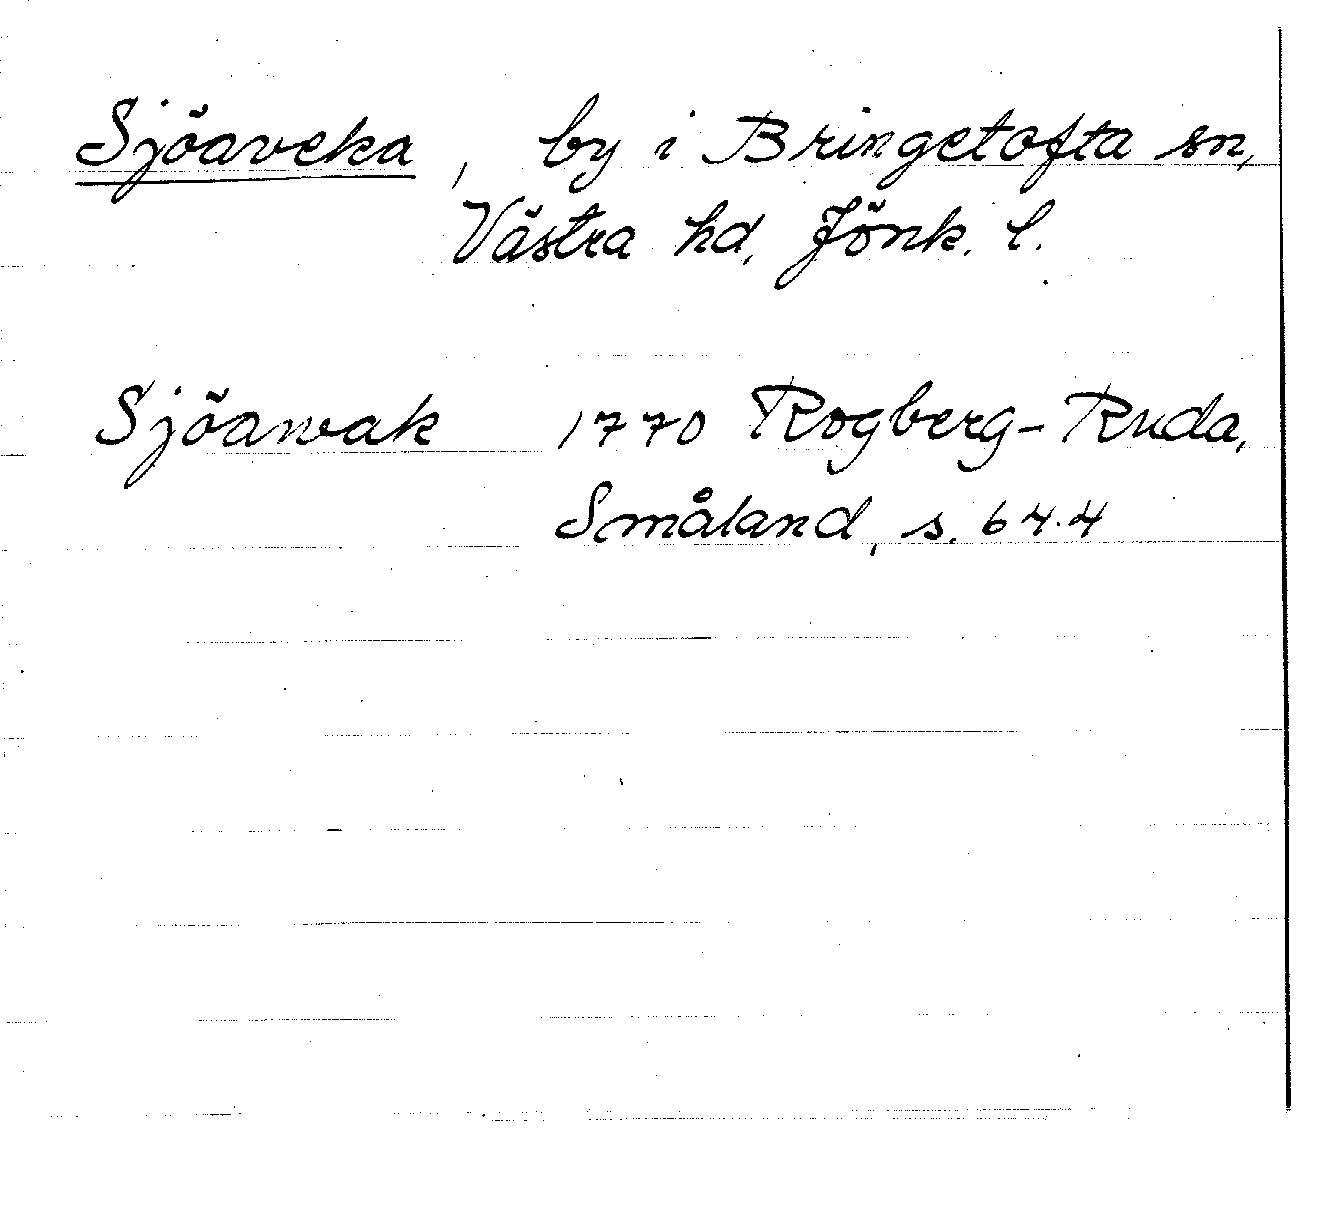 Sjöaveka, by i Bringetofta sn,
Västra hd, Jönk. l.
Sjöawak 1770 Rogberg-Ruda,
Småland, s. 644